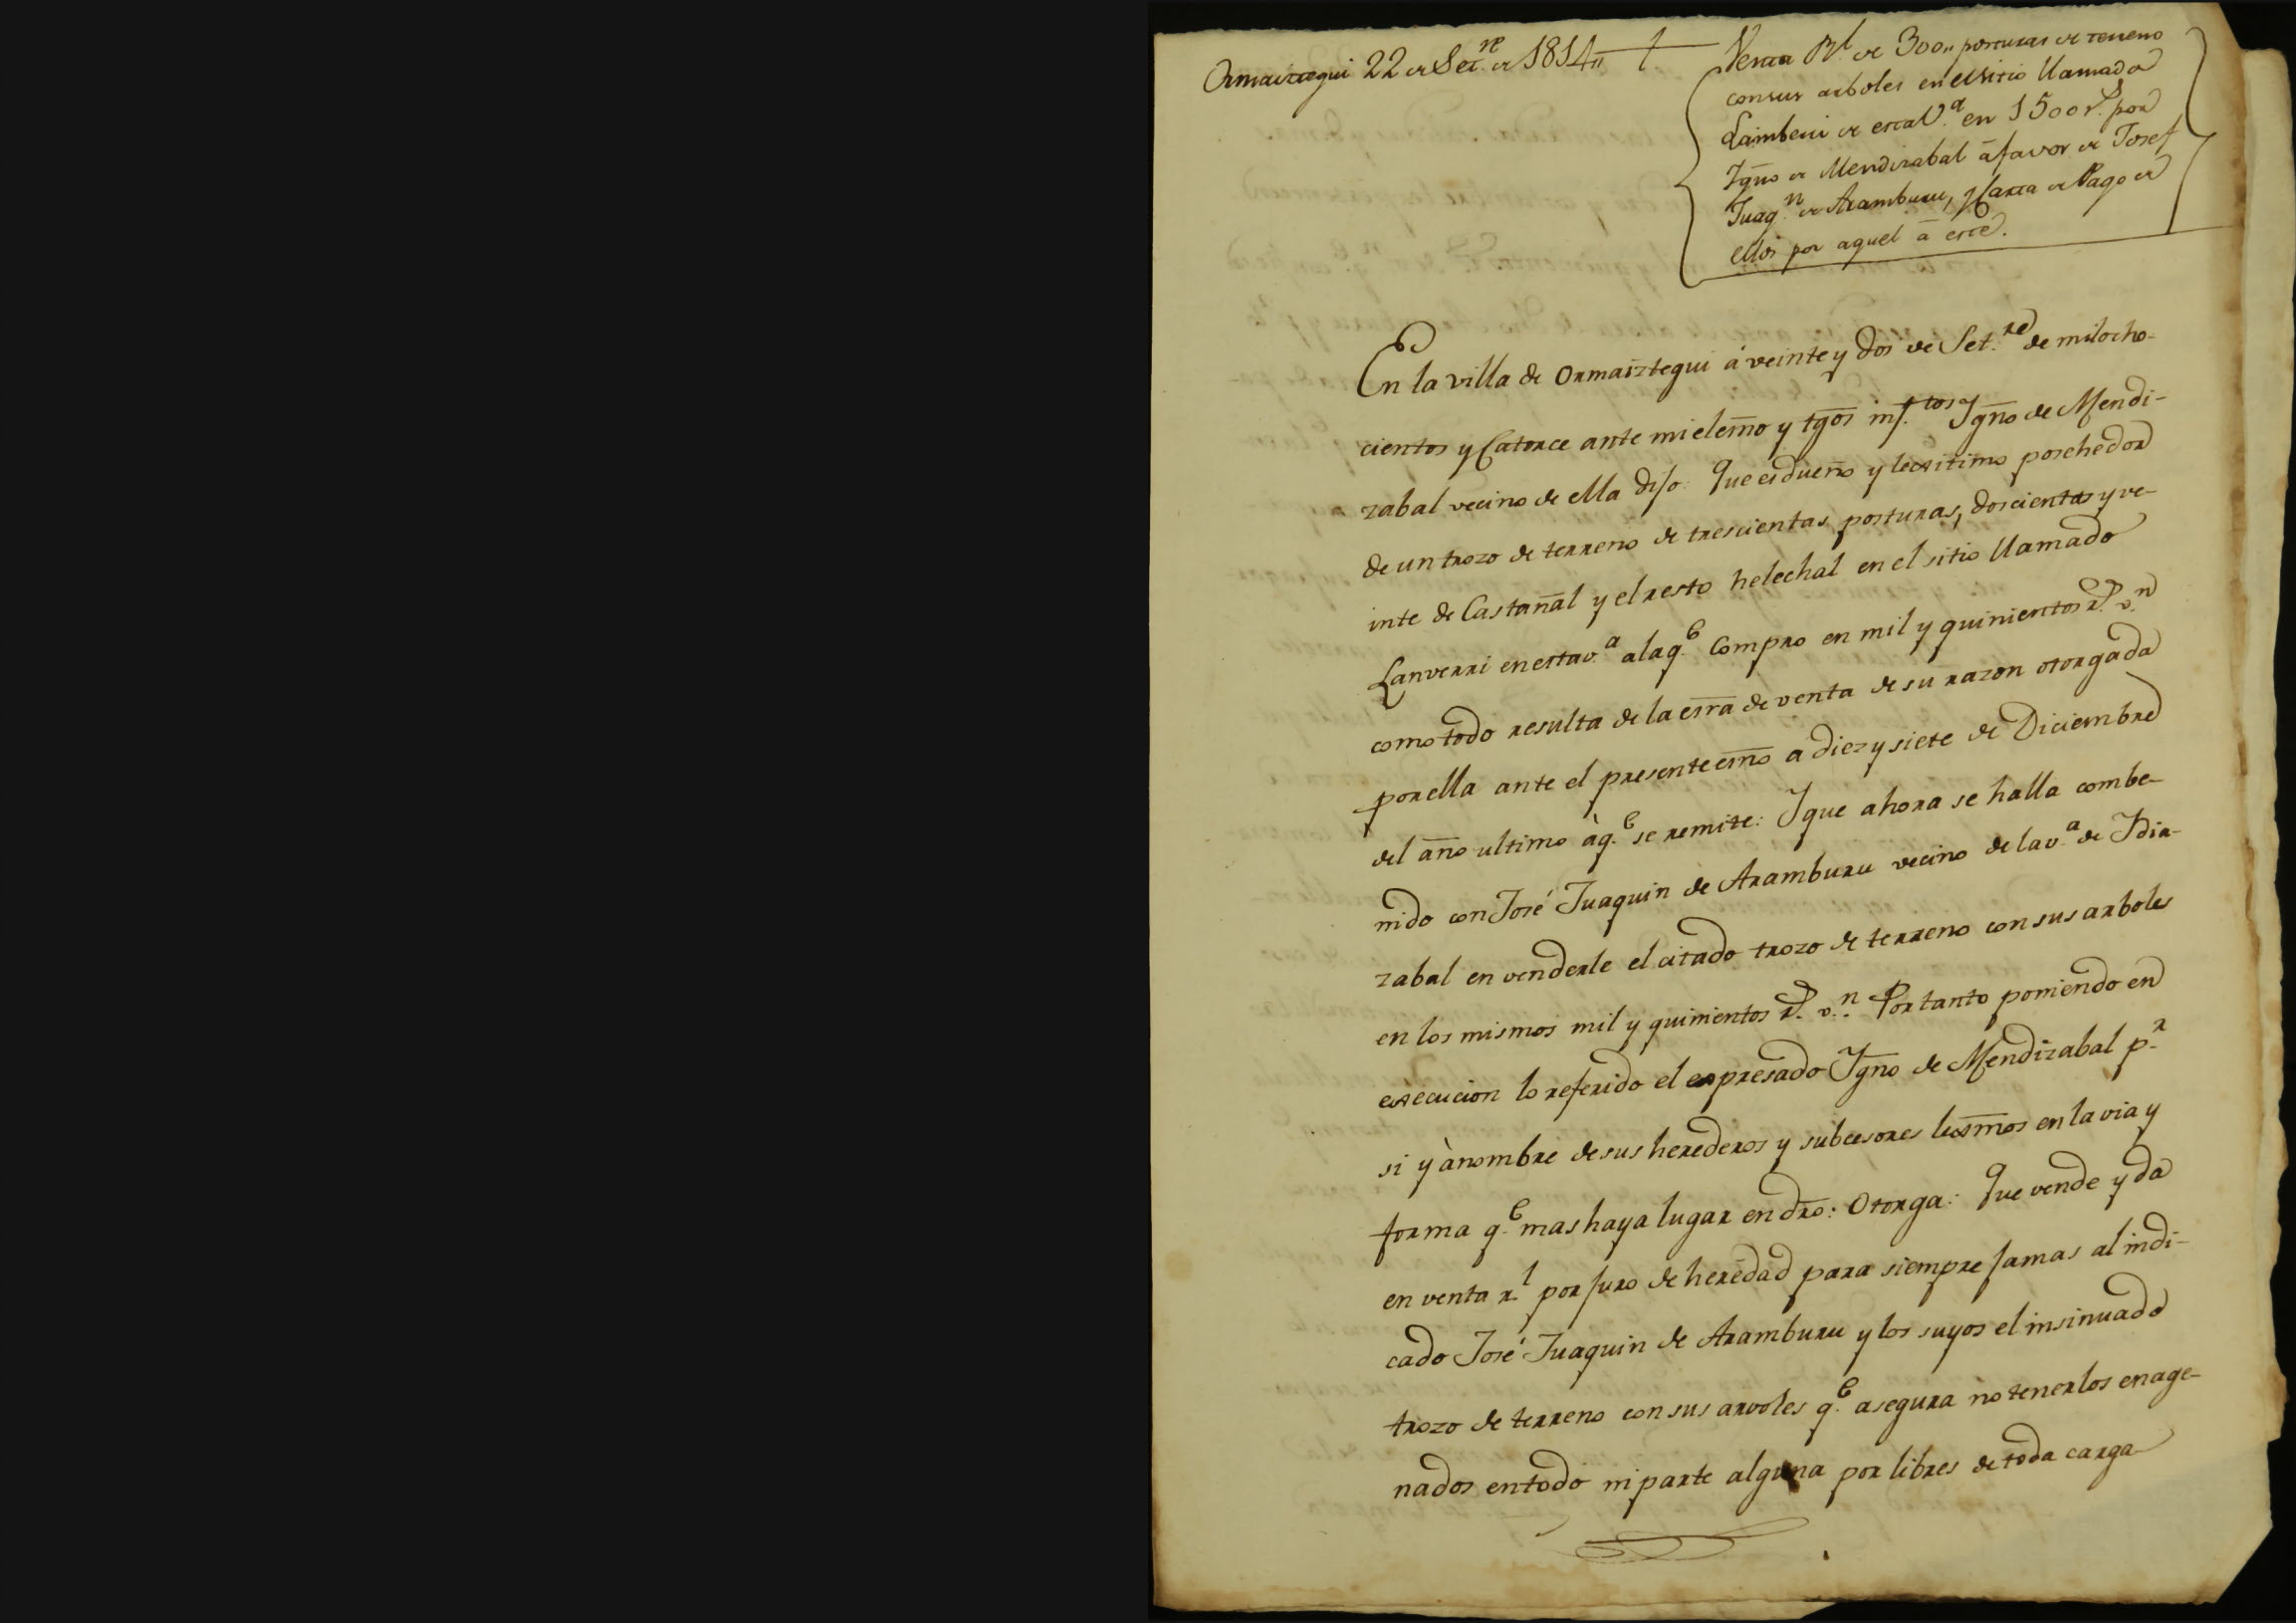 Ormaiztegui 22 de Set.re de 1814,,
Venta Rl. de 300,, posturas de terreno
con sus arboles en el sitio llamado
Lamberri de esta V.a en 1500 r.s por
Ygño de Mendizabal á favor de Josef
Juaq.n de Aramburu, y Carta de Pago de
ellos por aquel á este.
En la villa de Ormaiztegui á veinte y dos de Set.re de mil ocho-
cientos y Catorce ante mi el esno y tgos inf.tos Ygno de Mendi-
zabal vecino de ella dijo: Que es dueño y lexitimo poshedor
de un trozo de terreno de trescientas posturas, doscientas y ve-
inte de Castañal y el resto helechal en el sitio llamado
Lanverri en esta v.a a la q.e Compro en mil y quinientos r.s v.n
como todo resulta de la esrra de venta de su razon otorgada
por ella ante el presente esno a diez y siete de Diciembre
del año ultimo à q.e se remite: Y que ahora se halla combe-
nido con José Juaquin de Aramburu vecino de la v.a de Idia-
zabal en venderle el citado trozo de terreno con sus arboles
en los mismos mil y quinientos r.s v.n Por tanto poniendo en
execucion lo referido el expresado Ygno de Mendizabal p.r
si y à nombre de sus herederos y subcesores lexmos en la via y
forma q.e mas haya lugar en dro: Otorga: Que vende y da
en venta r.l por juro de heredad para siempre jamas al indi-
cado José Juaquin de Aramburu y los suyos el insinuado
trozo de terreno con sus arvoles q.e asegura no tenerlos enage-
nados en todo ni parte alguna por libres de toda carga